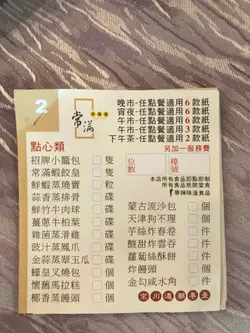 2
常滿
晚市-任點餐適用6款紙
宵夜-任點餐適用6款紙
午市-任點餐適用6款紙
午市-任點餐適用3款紙
下午茶-任點餐適用2款紙
另加一服務費
位數
檯號
點心類
本店所有食品即點即制
所有食品祇限堂食
辣味溫食品
招牌小籠包 隻
常滿蝦餃皇 隻
鮮蝦蒸燒賣 粒
蒜香蒸排骨 碟
鮮竹牛肉球 碟
薑蔥牛柏葉 碟
雜菌蒸滑雞 碟
豉汁蒸鳳爪 碟
金蒜蒸翠玉瓜 碟
蠔皇叉燒包 個
懷舊馬拉糕 個
椰香蒸饅頭 個
蒙古流沙包 個
天津狗不理 個
芋絲炸春卷 件
酸甜炸雲吞 件
蘿蔔絲酥餅 個
炸饅頭 個
金勾咸水角 件
京川滬潮粵菜